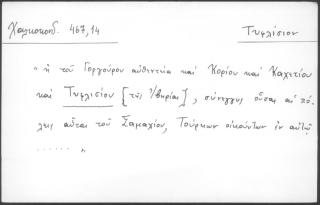 Χαλκοκονδ. 467,14
Τυφλίσιον
" ἡ τοῦ Γοργούρου αὐθεντία καὶ Κορίου καὶ Καχετίου
καὶ Τυφλισίου [τῆς Ἰβηρίας], σύνεγγυς οὖσαι αἱ πό-
λεις αὗται τοῦ Σαμαχίου, Τούρκων οἰκούντων ἐν αὐτῷ
...... "